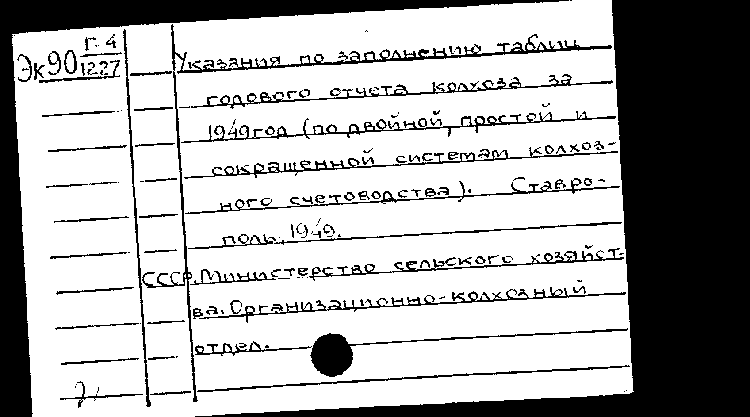 Эк90 Г.4
1227
Указания по заполнению таблиц
годового отчета колхоза за
1949 год (по двойной, простой и
сокращенной системам колхоз-
ного счетоводства). Ставро-
поль, 1949.
СССР. Министерство сельского хозяйст-
ва. Организационно-колхозный
отдел.